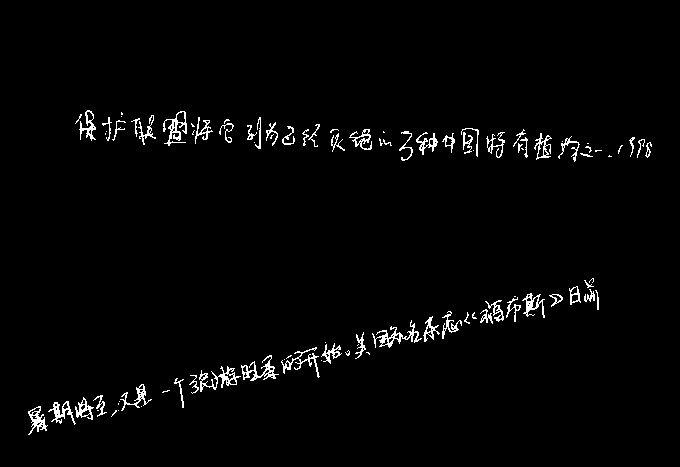 保护联盟将它列为已经灭绝的3种中国特有植物之一.1998
暑期将至,又是一个旅游旺季的开始。美国知名杂志《福布斯》日前